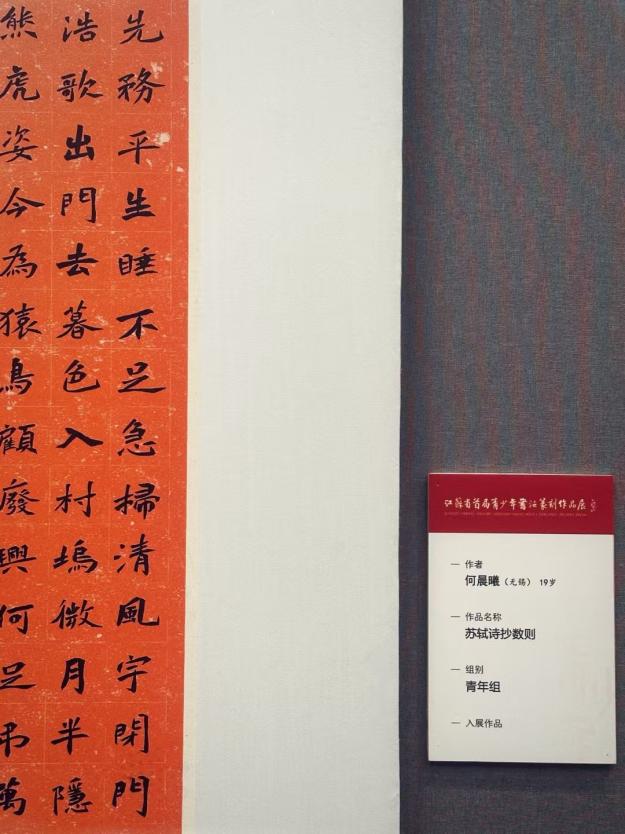 先務平生睡不足急掃清風宇閉門
浩歌出門去暮色入村塢微月半隱
熊虎姿今為猿鳥顧廢興何足弔萬
江蘇省首届青少年書法篆刻作品展
— 作者
何晨曦（无锡） 19岁
— 作品名称
苏轼诗抄数则
— 组别
青年组
— 入展作品